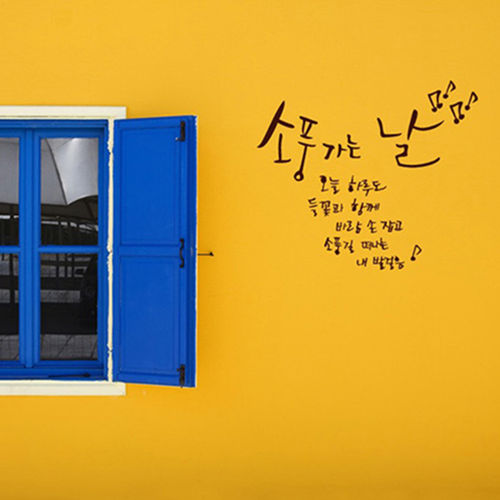 소풍 가는 날
오늘 하루도
들꽃과 함께
바람 손 잡고
소풍길 떠나는
내 발걸음